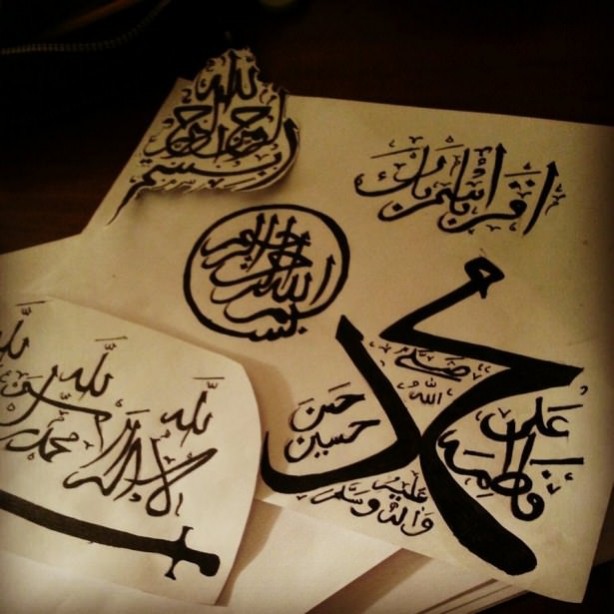 بسم الله الرحمن الرحيم
اقرأ باسم ربك
بسم الله الرحمن الرحيم
محمد
صلى الله
عليه وآله وسلم
علي
فاطمة
حسن
حسين
لا إله إلا الله
محمد رسول الله